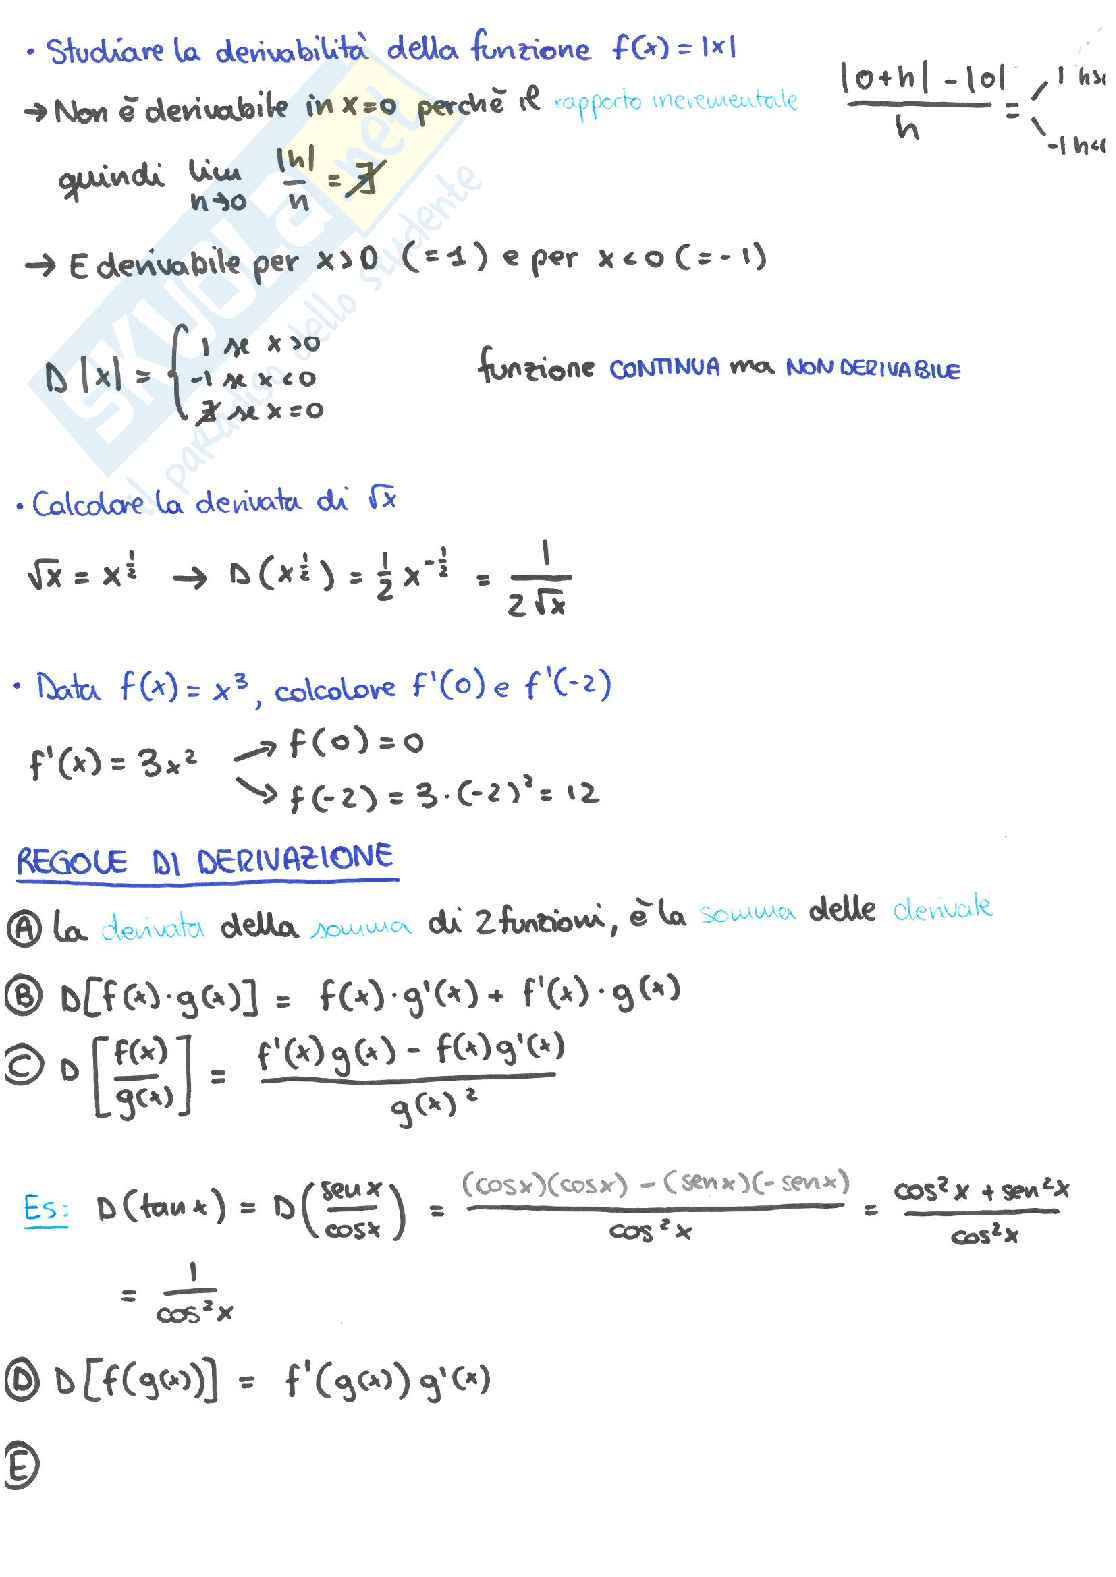 • Studiare la derivabilità della funzione f(x) = |x|
→ Non è derivabile in x=0 perchè il rapporto incrementale |0+h| - |0| / h = 1 h>0 -1 h<0
quindi lim h→0 |h|/h = ∄
→ E derivabile per x>0 (=1) e per x<0 (=-1)
D|x| = { 1 se x>0
-1 se x<0
∄ se x=0
funzione CONTINUA ma NON DERIVABILE
• Calcolare la derivata di √x
√x = x^½ → D(x^½) = ½ x^-½ = 1 / 2√x
• Data f(x) = x³, calcolare f'(0) e f'(-2)
f'(x) = 3x² → f(0) = 0
→ f(-2) = 3·(-2)² = 12
REGOLE DI DERIVAZIONE
Ⓐ La derivata della somma di 2 funzioni, è la somma delle derivate
Ⓑ D[f(x)·g(x)] = f(x)·g'(x) + f'(x)·g(x)
Ⓒ D[f(x)/g(x)] = f'(x)g(x) - f(x)g'(x) / g(x)²
Es: D(tan x) = D(sen x / cos x) = (cos x)(cos x) - (sen x)(-sen x) / cos²x = cos²x + sen²x / cos²x
= 1 / cos²x
Ⓓ D[f(g(x))] = f'(g(x)) g'(x)
Ⓔ
SKUOLA.net
il paradiso dello studente